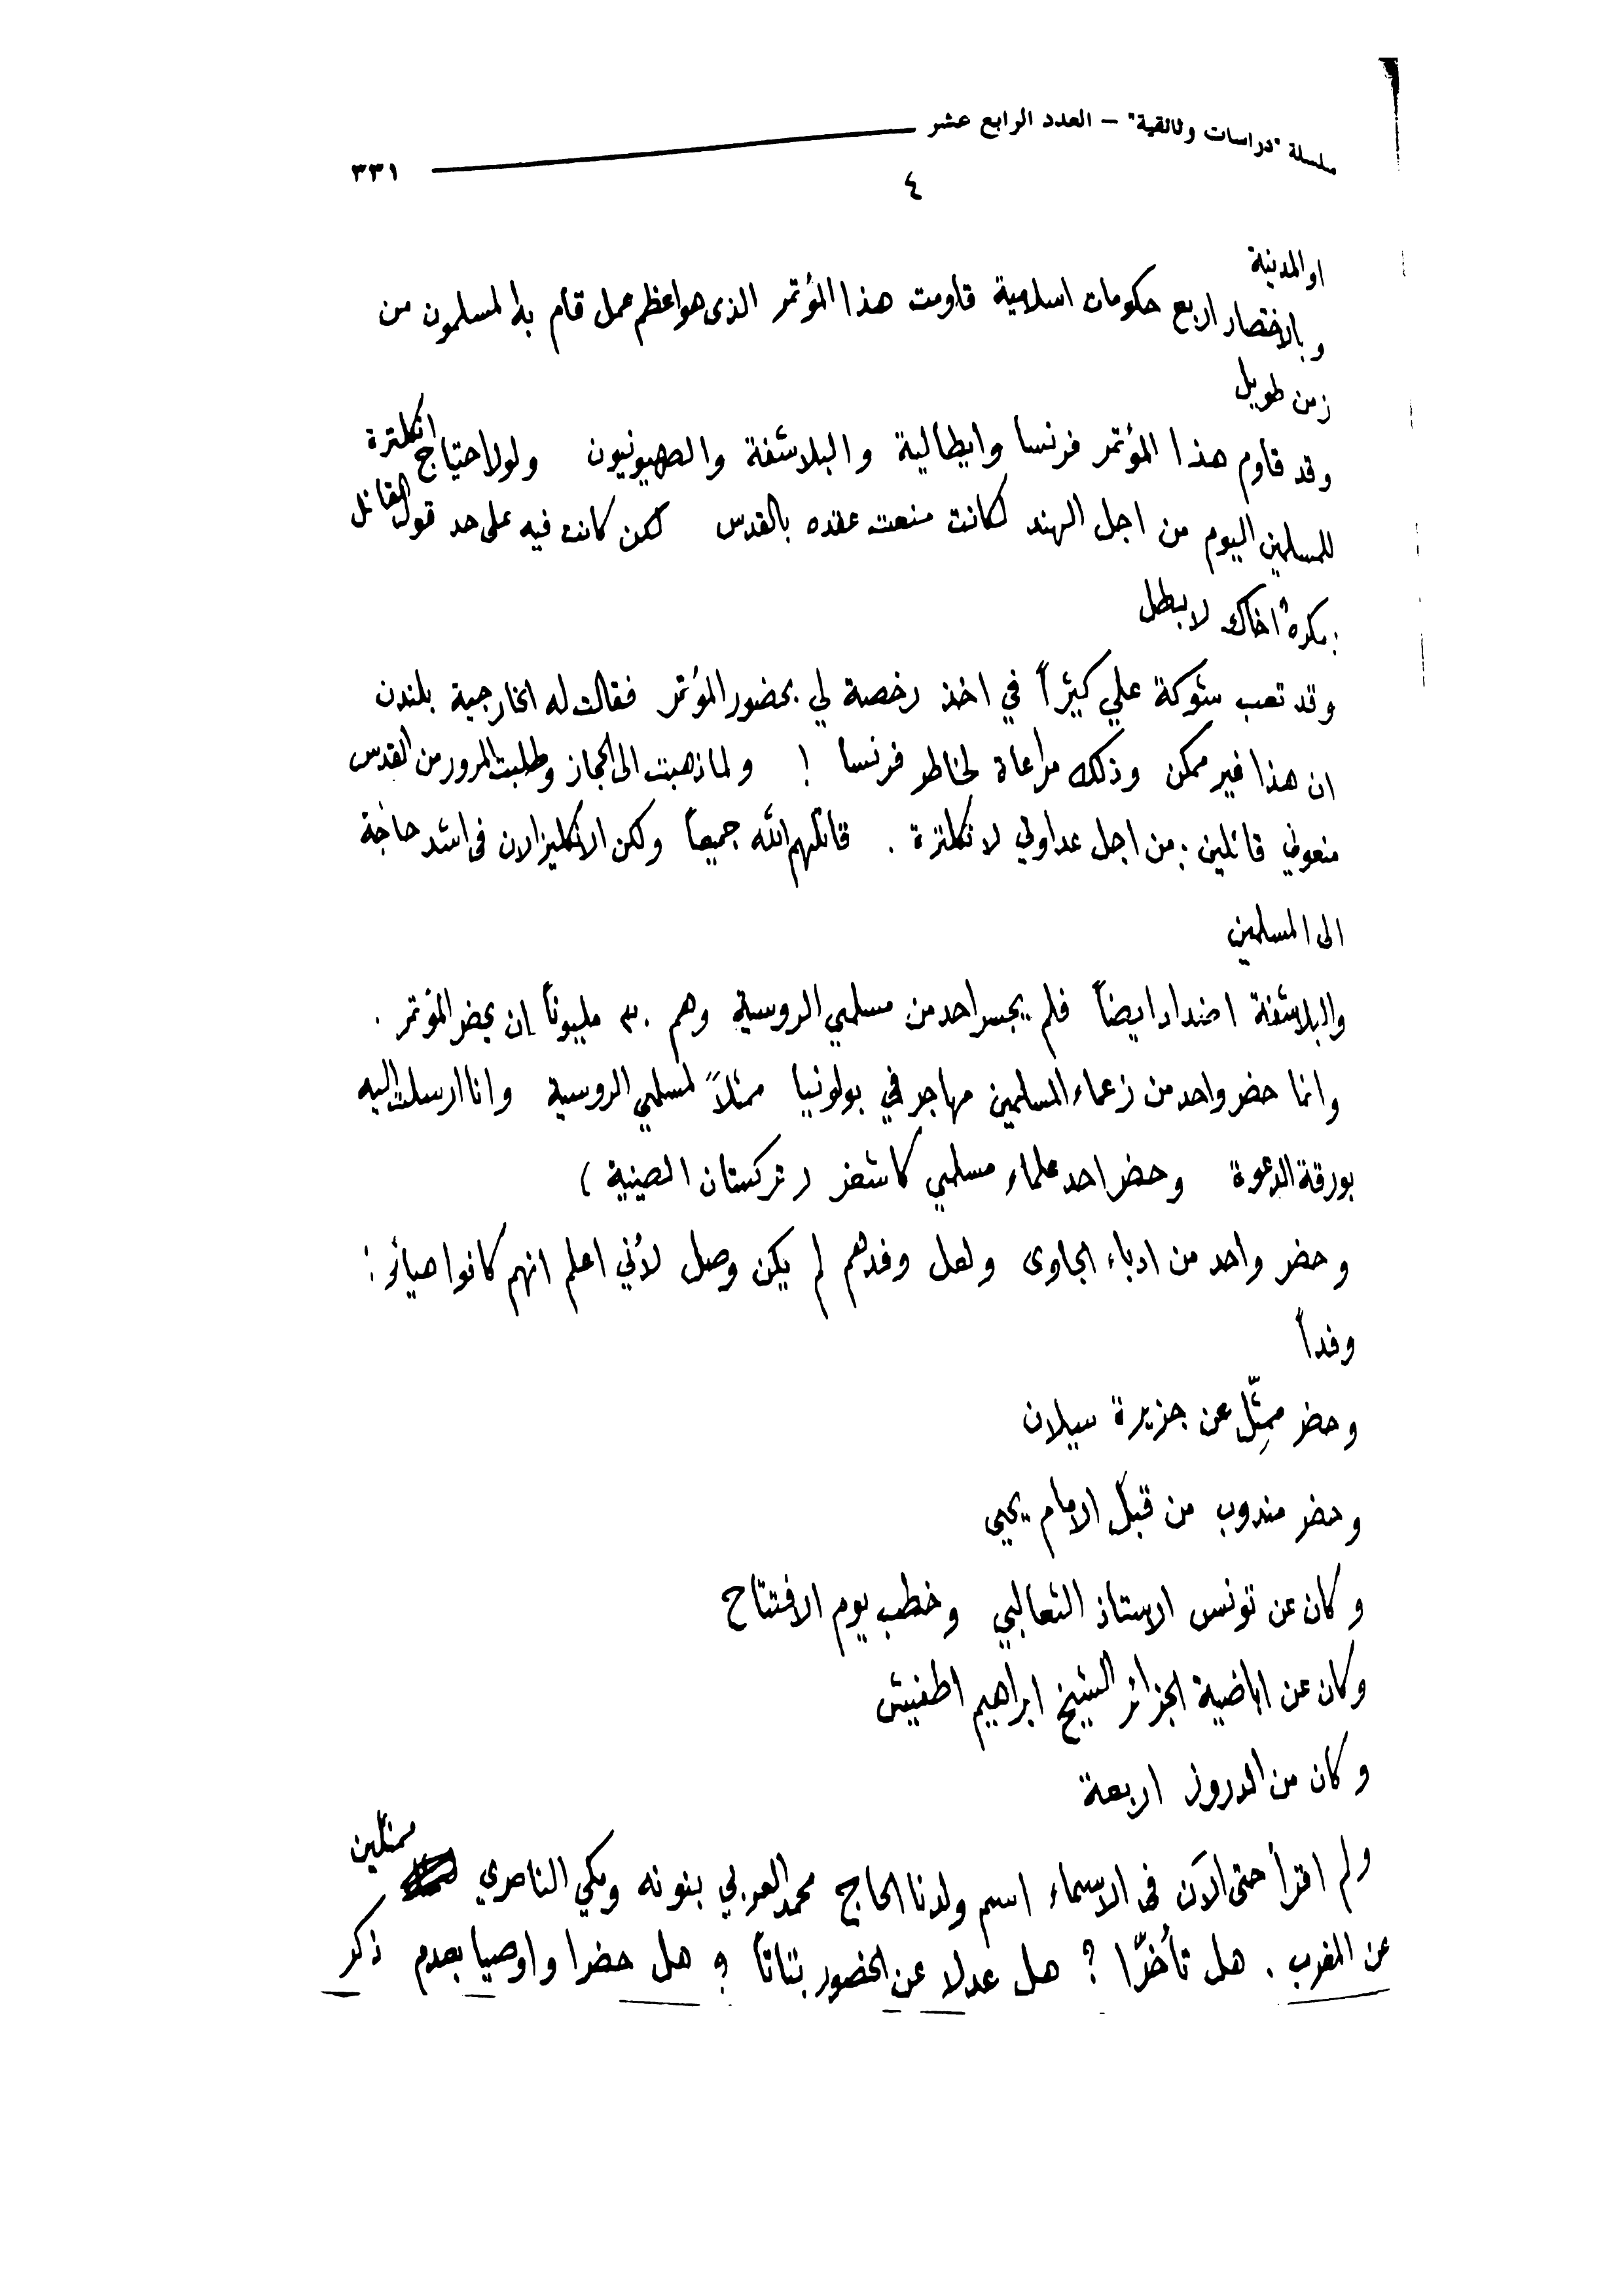 سلسلة "دراسات وثائقية" – العدد الرابع عشر
٣٣١
٤
او المدنية
وبالاختصار اربع حكومات اسلامية قاومت هذا المؤتمر الذى هو اعظم عمل قام به المسلمون من
زمن طويل
وقد قاوم هذا المؤتمر فرنسا وايطالية والبلاشفة والصهيونيون ولولا احتياج انكلترة
للمسلمين اليوم من اجل الهند لكانت منعت عقده بالقدس لكن كانت فيه على حد قول القائل
: مكرهٌ اخاك لا بطل
وقد تعب شوكة علي كثيراً في اخذ رخصة لي بحضور المؤتمر فقالت له الخارجية بلندن
ان هذا غير ممكن وذلك مراعاة لخاطر فرنسا ! ولما ذهبت الى الحجاز وطلبت المرور من القدس
منعوني قائلين : من اجل عداوتي لانكلترة . قاتلهم الله جميعاً ولكن الانكليز الان فى اشد حاجة
الى المسلمين
والبلاشفة اضداد ايضاً فلم يجسر احد من مسلمي الروسية وهم ٣٠ مليوناً إن يحضر المؤتمر .
وانما حضر واحد من زعماء المسلمين مهاجر في بولونيا ممثلاً لمسلمي الروسية وانا ارسلت اليه
بورقة الدعوة وحضر احد علماء مسلمي كاشغر ( تركستان الصينية )
وحضر واحد من ادباء الجاوى ولعل وفدهم لم يكن وصل لأني اعلم انهم كانوا هيأو :
وفداً
وحضر ممثِّل عن جزيرة سيلان
وحضر مندوب من قبل الامام يحيى
وكان عن تونس الاستاذ الثعالبي وخطب يوم الافتتاح
وكان عن اباضية الجزائر الشيخ ابراهيم اطفيش
وكان من الدروز اربعة
ولم اقرأ حتى الآن فى الاسماء اسم ولدنا الحاج محمد العربي بنونه ومكي الناصري ممثلين
عن المغرب . هل تأخرّا ؟ هل عدلا عن الحضور بتاتاً ؟ هل حضرا واوصيا بعدم ذكر